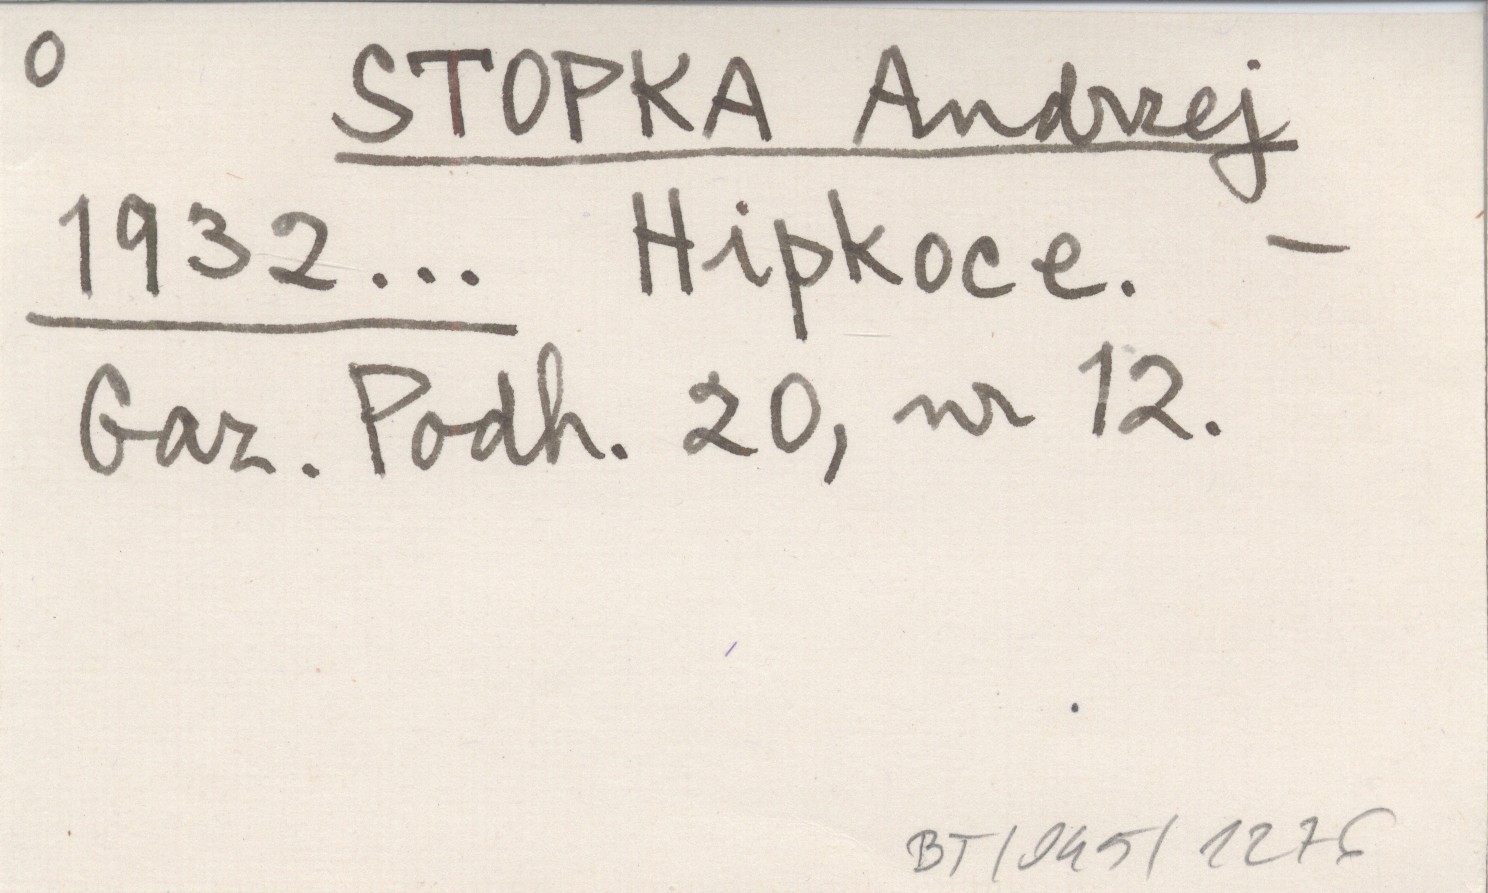 o STOPKA Andrzej
1932... Hipkoce. –
Gaz. Podh. 20, nr 12.
BT/945/1276